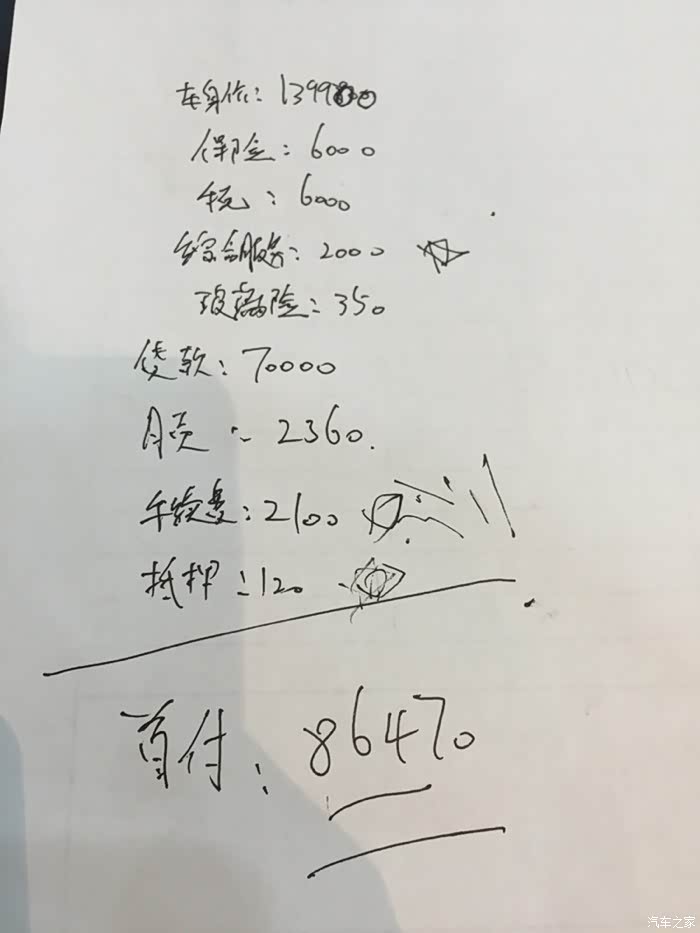 车身价：139900
保险：6000
税：6000
综合服务：2000
玻璃险：350
贷款：70000
月贡：2360.
手续费：2100
抵押：120
首付：86470
汽车之家